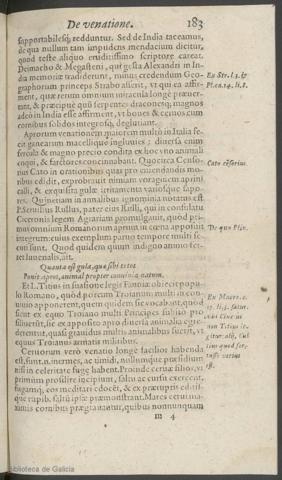 De venatione. 183
supportabilesq; redduntur. Sed de India taceamus,
de qua nullum tam impudens mendacium dicitur,
quod teste aliquo eruditissimo scriptore careat.
Deimacho & Megasteni, qui gesta Alexandri in In-
dia memoriæ tradiderunt, minus credendum Geo-
graphorum princeps Strabo asserit, vt qui ea affir-
ment, quæ rerum omnium naturam longè præuer-
tunt, & præcipuè quòd serpentes dracones, magnos
adeò in India esse affirment, vt boues & ceruos cum
cornibus solidos integrosq; deglutiant.
Ex Str. l. 2. &
Pl. ca. 14. li. 8.
Aprorum venationem maiorem multò in Italia fe-
cit ganearum macellique ingluuies: diuersa enim
fercula & magno precio condita ex hoc vno animali
coqui, & factores concinnabant. Quocirca Censo-
rius Cato in orationibus quas pro
edidit, exprobrauit nimium voraginem aprini
calli, & exquisita gulæ irritamenta
res. Quinetiam in annalibus ignominia notatus est
P. Seruilius Rullus, pater eius Rulli, qui in consulatu
Ciceronis legem Agrariam promulgauit, quòd pri-
mus omnium Romanorum aprum in cœna apposuit
integrum: cuius exemplum paruo tempore multi se-
cuti sunt. Quod quidem quum indigno animo fer-
ret Iuuenalis, ait:
Cato cẽsorius.
De quo Plin.
Quanta est gula, quæ sibi totos
Ponit apros, animal propter conuiuia natum.
Et L. Titius in suasione legis Fanniæ obiecit popu-
lo Romano, quòd porcum Troianum multi in con-
uiuio apponerent, quem quidem sic vocabant, quod
sicut ex equo Troiano multi Principes subitò pro-
siluerunt, sic ex apposito apro diuersa animalia egre-
derentur, quasi grauidus multis animalibus fuerit, vt
equus Troianus armatis militibus.
Ex Macro. c.
13. li. 3. satur.
vbi Cincius
non Titius le-
gitur
Ceruorum verò venatio longè facilior habenda
est, sunt. n. inermes, ac timidi, nullumque præsidium
nisi in celeritate fugæ habent. Proinde ceruæ filios, vt
primum prosilire incipiunt, saltu ac cursu exercent,
fugamq; eos meditari edocet, & ex præruptis editis-
que rupib. saltu ipsæ præmonstrant. Mares cerui ma-
ximis cornibus prægrauantur, quibus nonnunquam
m 4
Biblioteca de Galicia